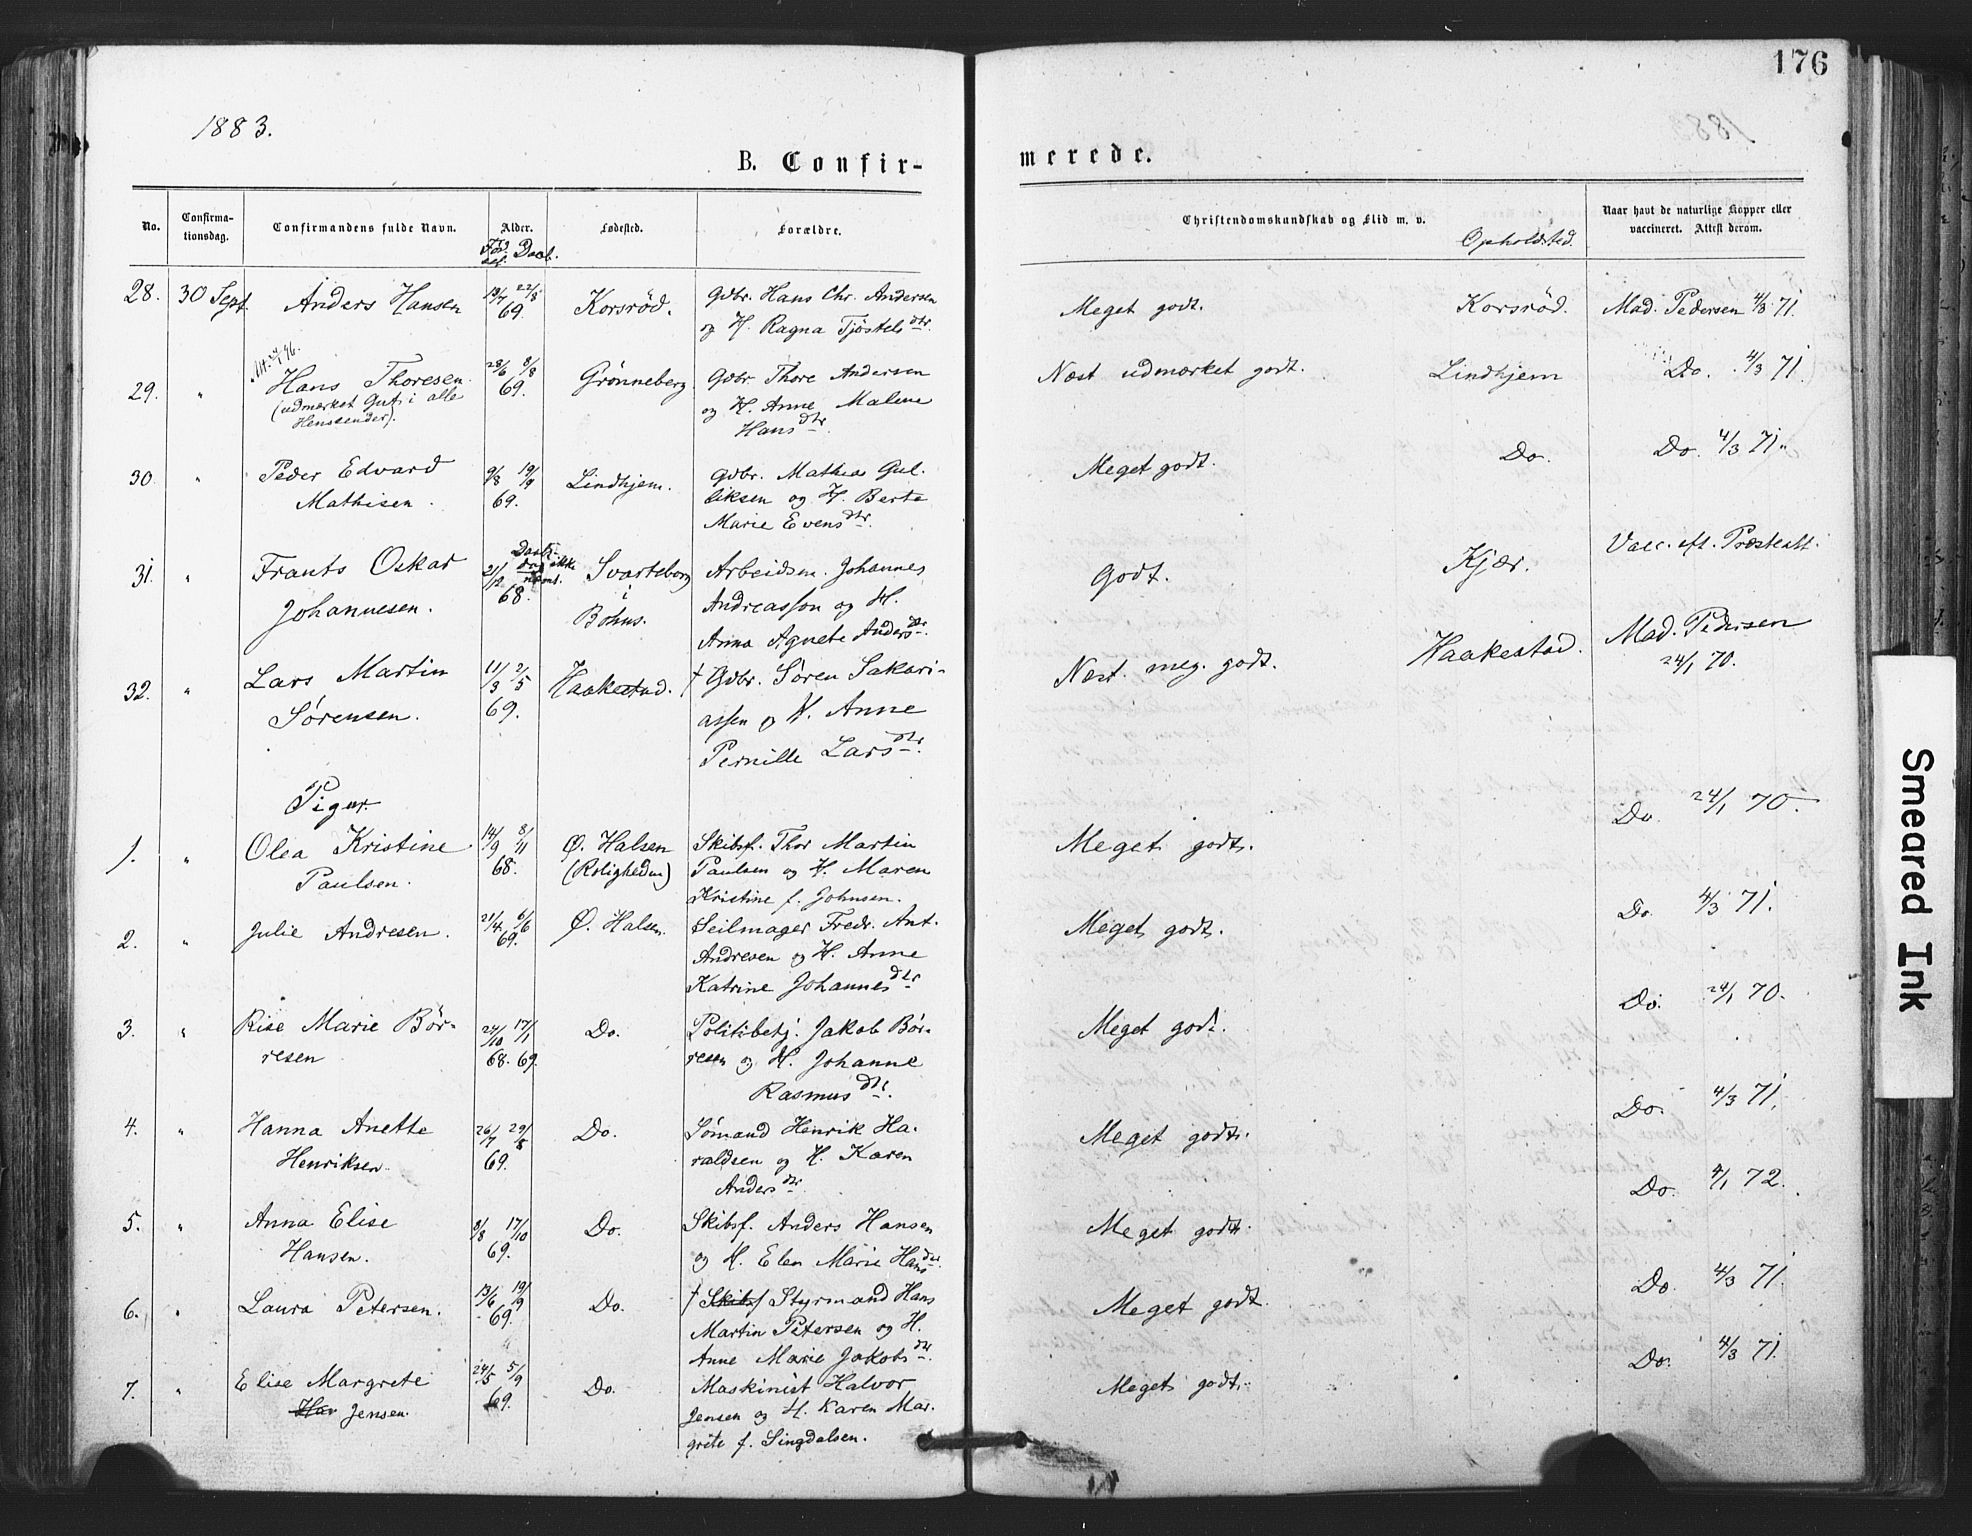 176
1883.
B. Confir-
merede.
No. Confirma-tionsdag. Confirmandens fulde Navn. Alder. Fødested. Forældre. Christendomskundskab og Flid m. v. Opholdsted. Naar havt de naturlige Kopper eller vaccineret. Attest derom.
Daab.
28. 30 Sept. Anders Hansen 13/7 22/8 69. Korsröd. Gdbr. Hans Chr. Andersen Meget godt. Korsröd. Mad. Pedersen 4/3 71.
og H. Ragna Tjöstelsdtr.
29. " Hans Thoresen 28/6 8/8 69. Grønneberg Gdbr Thore Andersen Næst udmærket godt. Lindhjem Do. 4/3 71.
(udmærket Gut i alle og H. Anne Malene
Henseender). Hansdtr.
30. " Peder Edvard 9/8 19/9 Lindhjem. Gdbr. Mathias Gul- Meget godt. Do. Do. 4/3 71.
Mathisen. 69. liksen og H. Berte
Marie Evensdtr.
31. " Frants Oskar 21/12 68. Daab. dag ikke nævnt. Svarteborg Arbeidsm. Johannes Godt. Kjær. Vacc. eft. Præsteatt.
Johannesen. i Andreassøn og H.
Bohus. Anna Agnete Andersdtr.
32. " Lars Martin 11/3 2/5 Haakestad. † Gdbr. Søren Sakari- Næst meg. godt. Haakestad. Mad. Pedersen
Sørensen. 69. assen og H. Anne 24/1 70.
Pernille Larsdtr.
Piger.
1. " Olea Kristine 14/9 8/11 Ø. Halsen Skibsf. Thor Martin Meget godt. Do. 24/1 70.
Paulsen. 68. (Roligheden) Paulsen og H. Maren
Kristine f. Johnsen.
2. " Julie Andresen. 21/4 6/6 69. Ø. Halsen. Seilmager Fredr. Ant. Meget godt. Do. 4/3 71.
Andresen og H. Anne
Katrine Johannesdtr
3. " Rise Marie Bör- 24/10 17/1 Do. Politibetj. Jakob Bör- Meget godt. Do. 24/1 70.
resen 68. 69. resen og H. Johanne
Rasmusdtr.
4. " Hanna Anette 26/7 29/8 Do. Sømand Henrik Ha- Meget godt. Do. 4/3 71.
Henriksen. 69. raldsen og H. Karen
Andersdtr.
5. " Anna Elise 3/8 17/10 Do. Skibsf. Anders Hansen Meget godt. Do. 4/1 72.
Hansen. 69. og H. Elen Marie Hansdtr.
6. " Laura Petersen. 13/6 19/9 69. Do. † Skibsf Styrmand Hans Meget godt. Do. 4/3 71.
Martin Petersen og H.
Anne Marie Jakobsdtr.
7. " Elise Margrete 24/5 5/9 Do. Maskinist Halvor Meget godt. Do. 4/3 71.
Hav Jensen. 69. Jensen og H. Karen Mar-
grete f. Singdalsen.
Smeared Ink